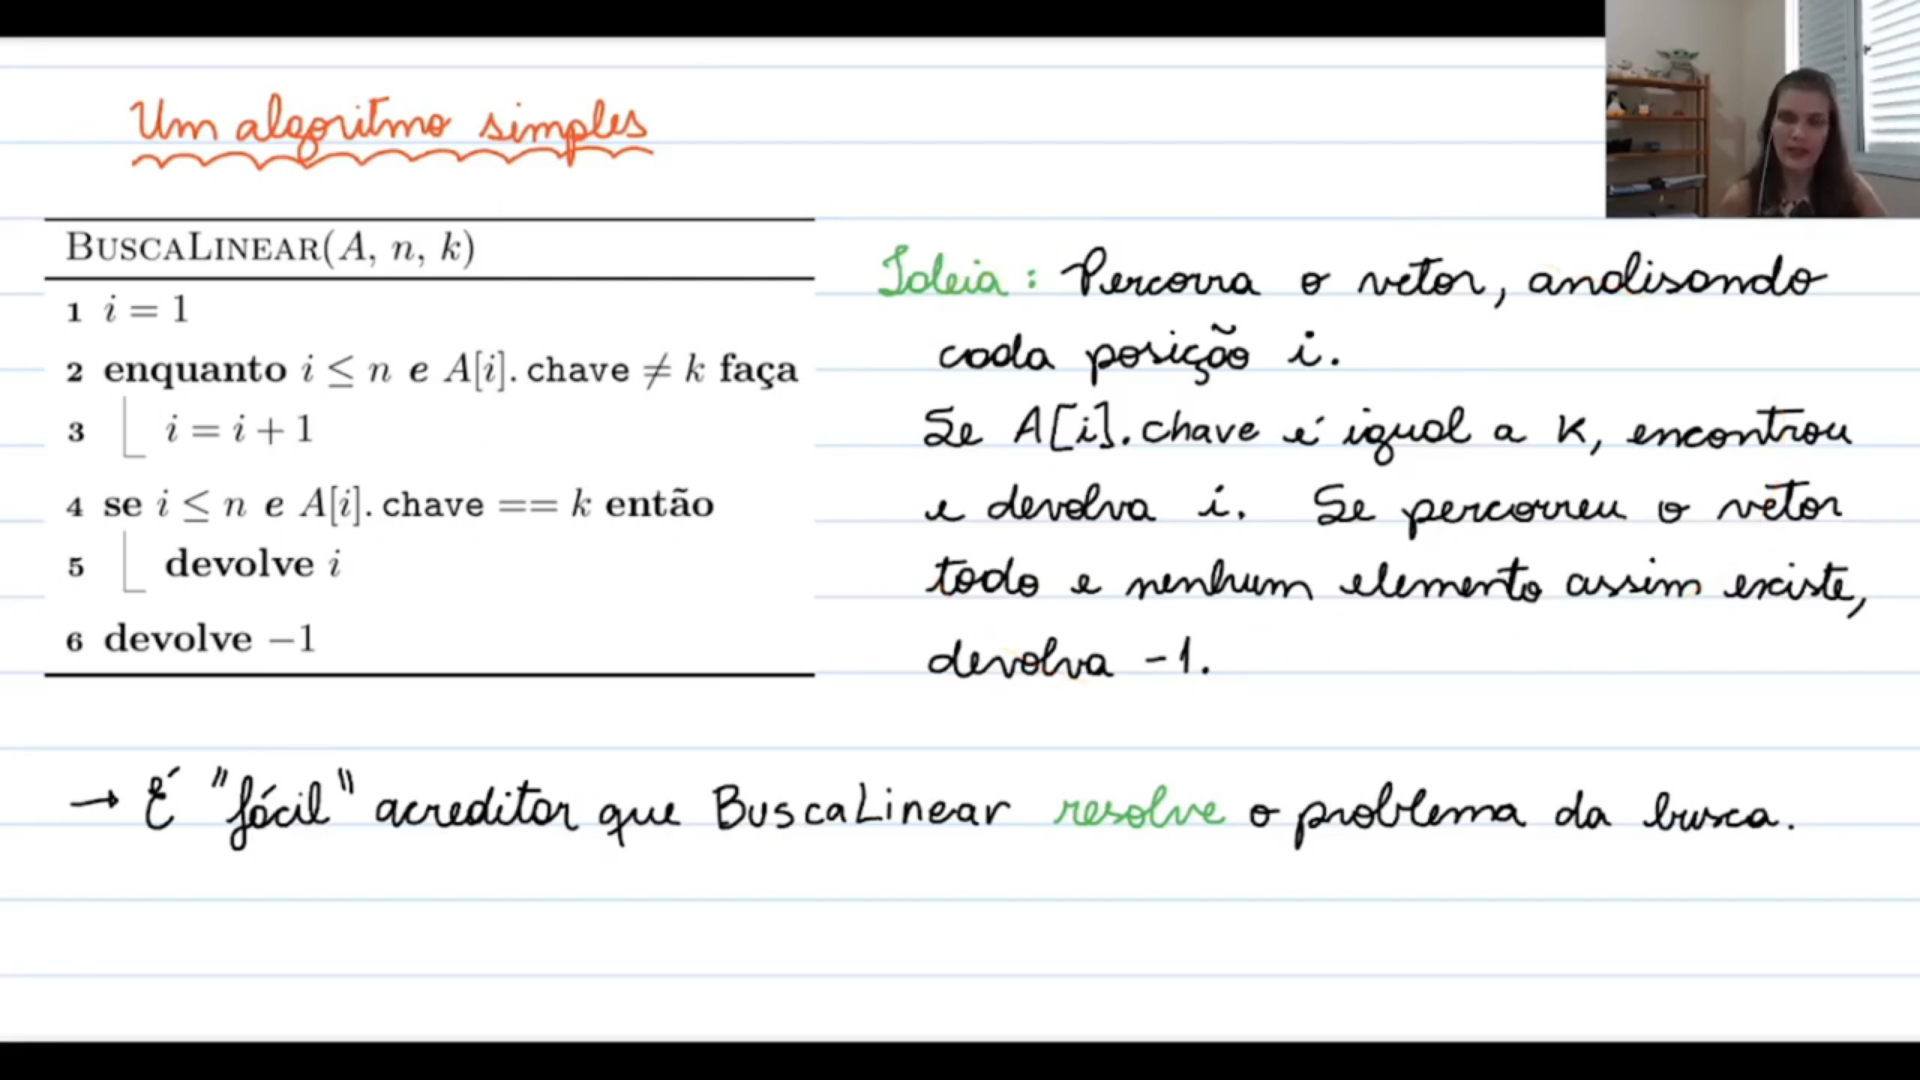 Um algoritmo simples
BUSCALINEAR(A, n, k)
1 i = 1
2 enquanto i ≤ n e A[i].chave ≠ k faça
3 i = i + 1
4 se i ≤ n e A[i].chave == k então
5 devolve i
6 devolve −1
Ideia: Percorra o vetor, analisando
cada posição i.
Se A[i].chave é igual a K, encontrou
e devolva i. Se percorreu o vetor
todo e nenhum elemento assim existe,
devolva -1.
→ É "fácil" acreditar que BuscaLinear resolve o problema da busca.